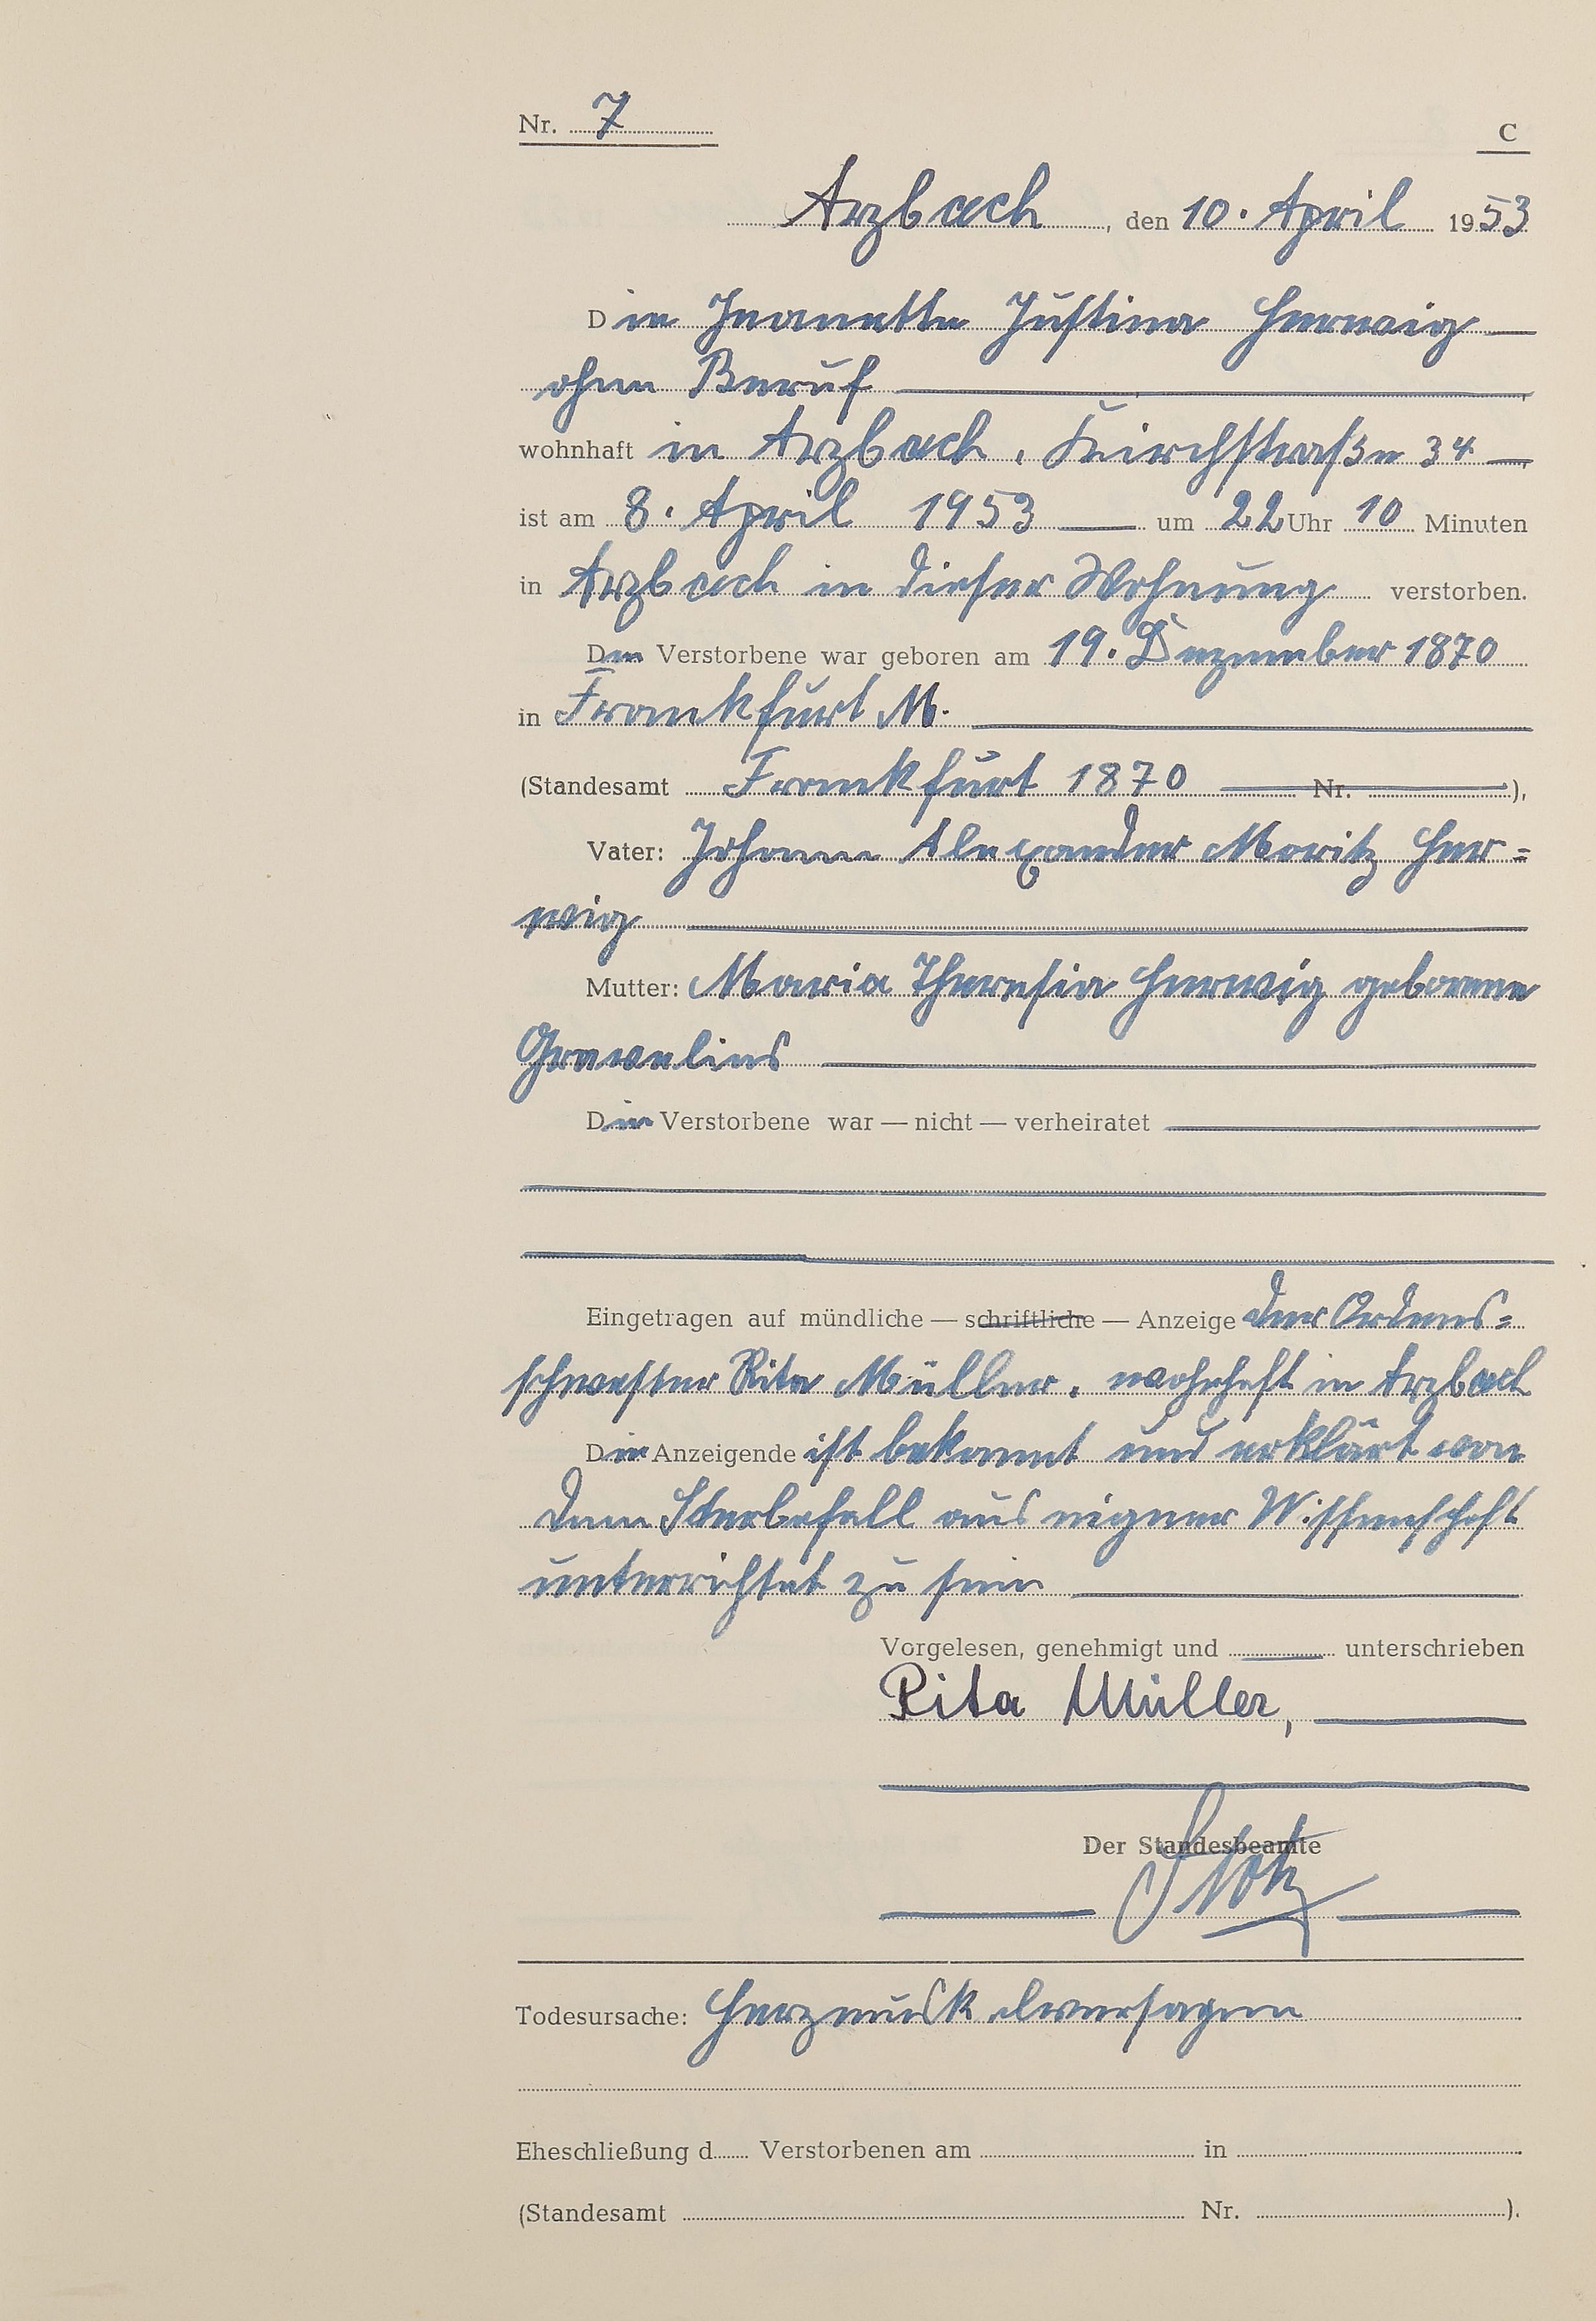 Nr. 7
C
Arzbach, den 10. April 1953
Die Jeanette Justina Herwig
ohne Beruf
wohnhaft in Arzbach, Kirchstraße 34
ist am 8. April 1953 um 22 Uhr 10 Minuten
in Arzbach in dieser Wohnung verstorben.
Die Verstorbene war geboren am 19. Dezember 1870
in Frankfurt M.
(Standesamt Frankfurt 1870 Nr. ),
Vater: Johann Alexander Moritz Her=
wig
Mutter: Maria Theresia Herwig geborene
Die Verstorbene war — nicht — verheiratet
Eingetragen auf mündliche — schriftliche — Anzeige der Ordens=
schwester Rita Müller, wohnhaft in Arzbach
Die Anzeigende ist bekannt und erklärt von
dem Sterbefall aus eigner Wissenschaft
unterrichtet zu sein
Vorgelesen, genehmigt und unterschrieben
Rita Müller,
Der Standesbeamte
Stotz
Todesursache: Herzmuskelversagen
Eheschließung d Verstorbenen am in
(Standesamt Nr. ).